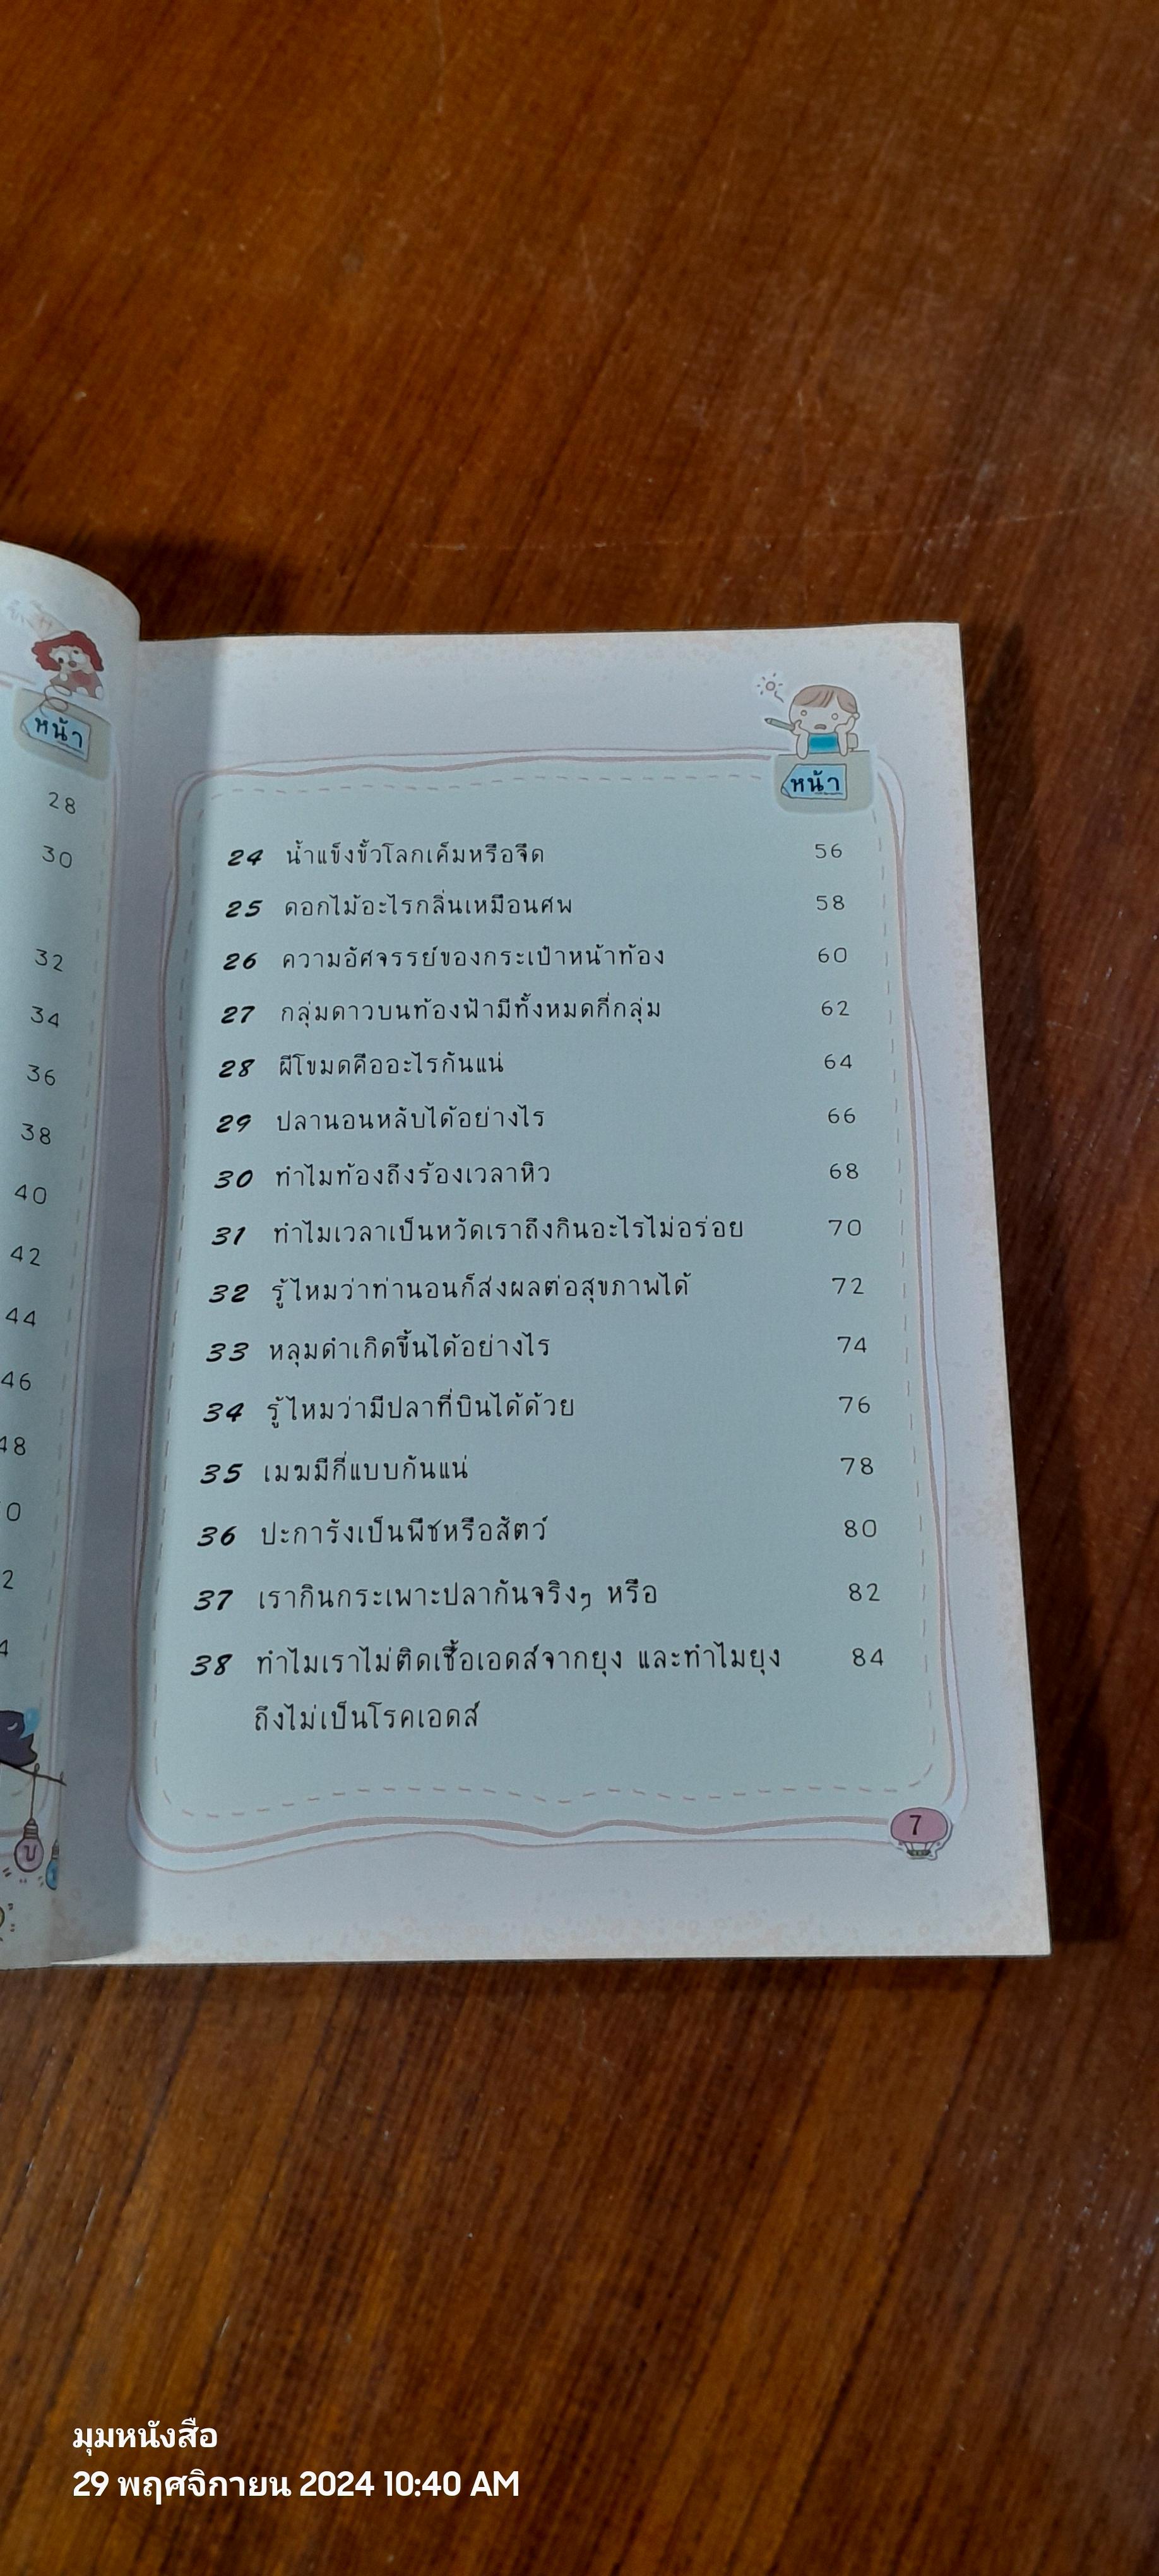 หน้า
28
30
32
34
36
38
40
42
44
46
48
0
2
4
บ
หน้า
24 น้ำแข็งขั้วโลกเค็มหรือจืด 56
25 ดอกไม้อะไรกลิ่นเหมือนศพ 58
26 ความอัศจรรย์ของกระเป๋าหน้าท้อง 60
27 กลุ่มดาวบนท้องฟ้ามีทั้งหมดกี่กลุ่ม 62
28 ผีโขมดคืออะไรกันแน่ 64
29 ปลานอนหลับได้อย่างไร 66
30 ทำไมท้องถึงร้องเวลาหิว 68
31 ทำไมเวลาเป็นหวัดเราถึงกินอะไรไม่อร่อย 70
32 รู้ไหมว่าท่านอนก็ส่งผลต่อสุขภาพได้ 72
33 หลุมดำเกิดขึ้นได้อย่างไร 74
34 รู้ไหมว่ามีปลาที่บินได้ด้วย 76
35 เมฆมีกี่แบบกันแน่ 78
36 ปะการังเป็นพืชหรือสัตว์ 80
37 เรากินกระเพาะปลากันจริงๆ หรือ 82
38 ทำไมเราไม่ติดเชื้อเอดส์จากยุง และทำไมยุง 84
ถึงไม่เป็นโรคเอดส์
7
มุมหนังสือ
29 พฤศจิกายน 2024 10:40 AM